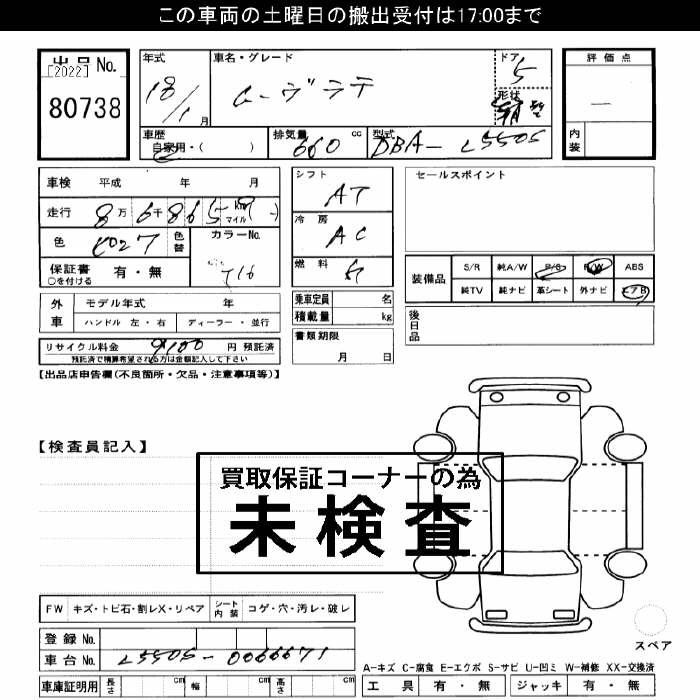 この車両の土曜日の搬出受付は17:00まで
出品 No.
[2022]
80738
年式
18/1月
車名・グレード
ムーヴラテ
ドア
5
形状
評価点
内装
車歴
自家用・( )
排気量 660 cc
型式 DBA-L550S
車検 平成 年 月
走行 8万6千865 km マイル
色
色替
カラーNo.
T16
保証書 有・無
○を付ける
シフト
AT
冷房
AC
燃料
ガ
セールスポイント
装備品
S/R 純A/W P/S P/W ABS
純TV 純ナビ 革シート 外ナビ エアB
外車
モデル年式 年
ハンドル 左・右 ディーラー・並行
乗車定員 名
積載量 kg
後日品
リサイクル料金 9100 円 預託済
預託済で精算希望される方は金額記入して下さい
書類期限
月 日
【出品店申告欄(不良箇所・欠品・注意事項等)】
【検査員記入】
買取保証コーナーの為
未検査
FW キズ・トビ石・割レX・リペア シート内装 コゲ・穴・汚レ・破レ
登録 No.
車台 No. L550S-0066671
スペア
A-キズ C-腐食 E-エクボ S-サビ U-凹ミ W-補修 XX-交換済
車庫証明用 長さ cm 幅 cm 高さ cm
工具 有・無 ジャッキ 有・無